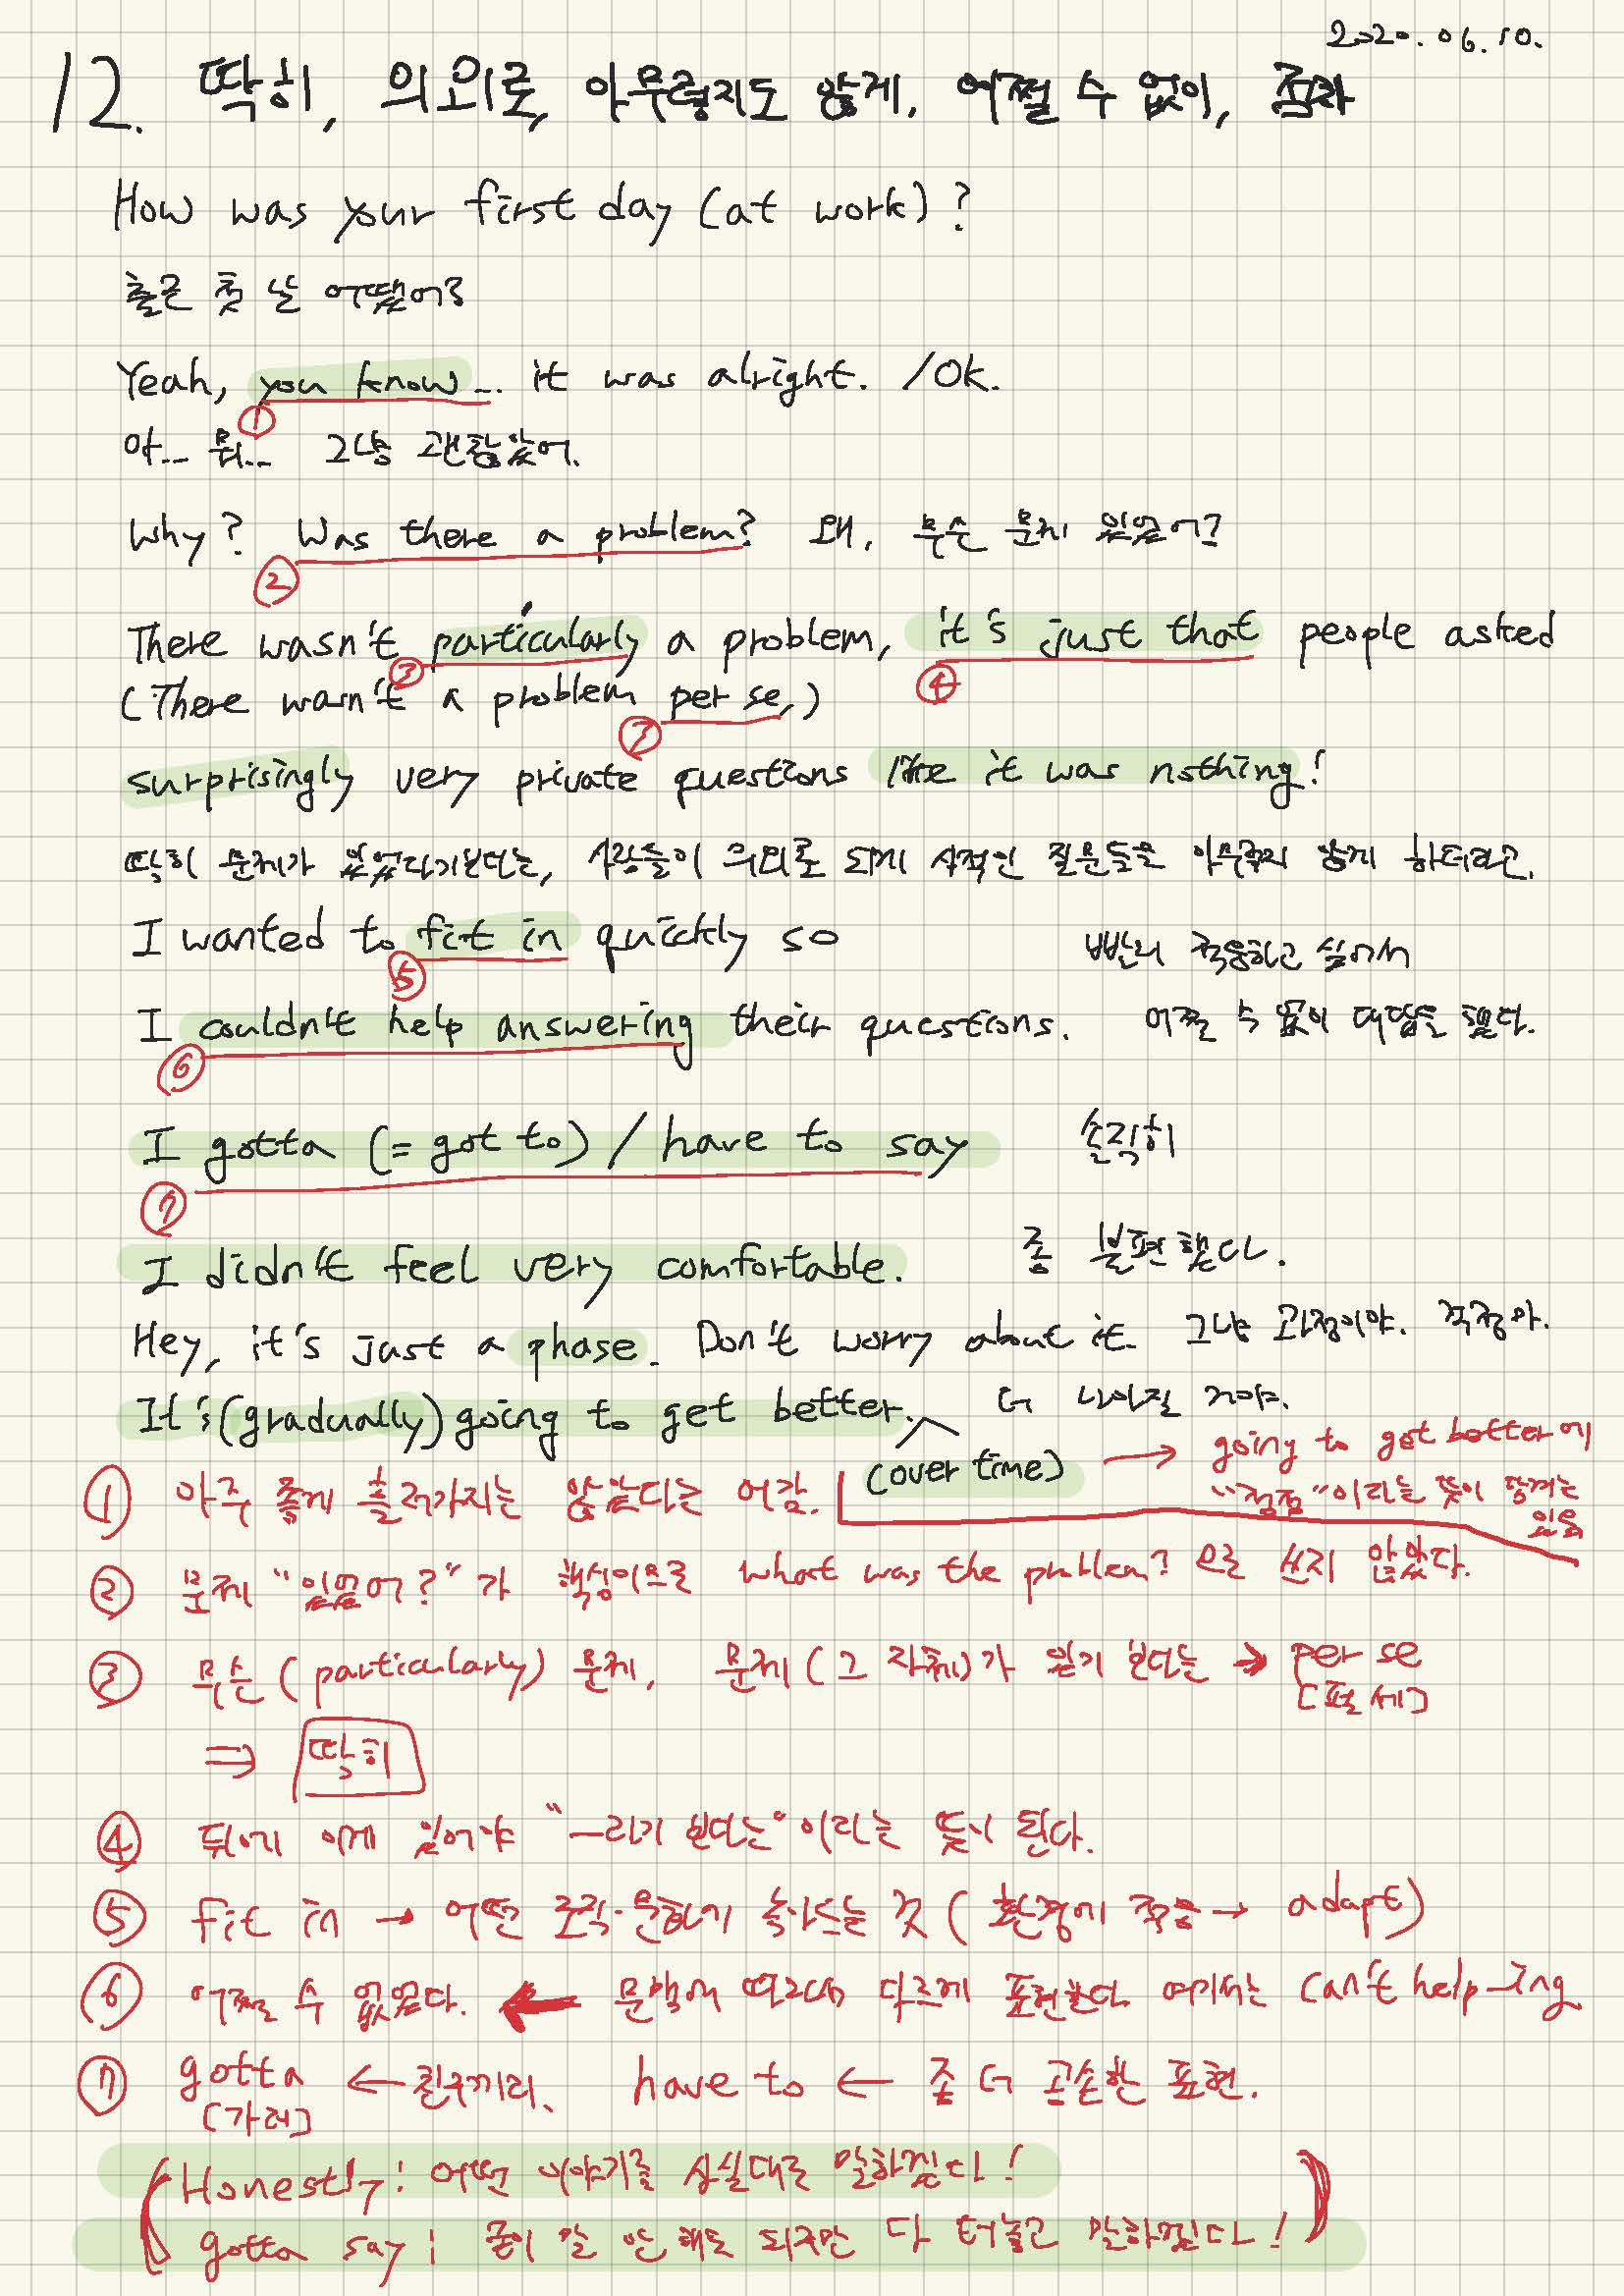 2020.06.10.
12. 딱히, 의외로, 아무렇지도 않게, 어쩔 수 없이, 점차
How was your first day (at work)?
출근 첫 날 어땠어?
Yeah, you know... it was alright. /Ok.
①
아... 뭐... 그냥 괜찮았어.
Why? Was there a problem? 왜, 무슨 문제 있었어?
②
There wasn't particularly a problem, it's just that people asked
③ ④
(There wasn't a problem per se,)
③
surprisingly very private questions like it was nothing!
딱히 문제가 있었다기보다는, 사람들이 의외로 되게 사적인 질문들을 아무렇지 않게 하더라고.
I wanted to fit in quickly so 빨리 적응하고 싶어서
⑤
I couldn't help answering their questions. 어쩔 수 없이 대답을 했다.
⑥
I gotta (= got to) / have to say 솔직히
⑦
I didn't feel very comfortable. 좀 불편했다.
Hey, it's just a phase. Don't worry about it. 그냥 과정이야. 걱정마.
It's (gradually) going to get better. 더 나아질 거야.
(over time) → going to get better에
"점점"이라는 뜻이 담겨는
있음
① 아주 좋게 흘러가지는 않았다는 어감.
② 문제 "있었어?"가 핵심이므로 what was the problem? 으로 쓰지 않았다.
③ 무슨 (particularly) 문제, 문제(그 자체)가 있기 보다는 → per se
[펄 세]
⇒ 딱히
④ 뒤에 이게 있어야 "—라기 보다는"이라는 뜻이 된다.
⑤ fit in → 어떤 조직·문화에 녹아드는 것 (환경에 적응 → adapt)
⑥ 어쩔 수 없었다. ← 문맥에 따라 다르게 표현한다. 여기서는 can't help -ing
⑦ gotta ← 친구끼리. have to ← 좀 더 공손한 표현.
[가러]
(Honestly: 어떤 이야기를 사실대로 말하겠다!
gotta say: 굳이 말 안 해도 되지만 다 터놓고 말하겠다!)